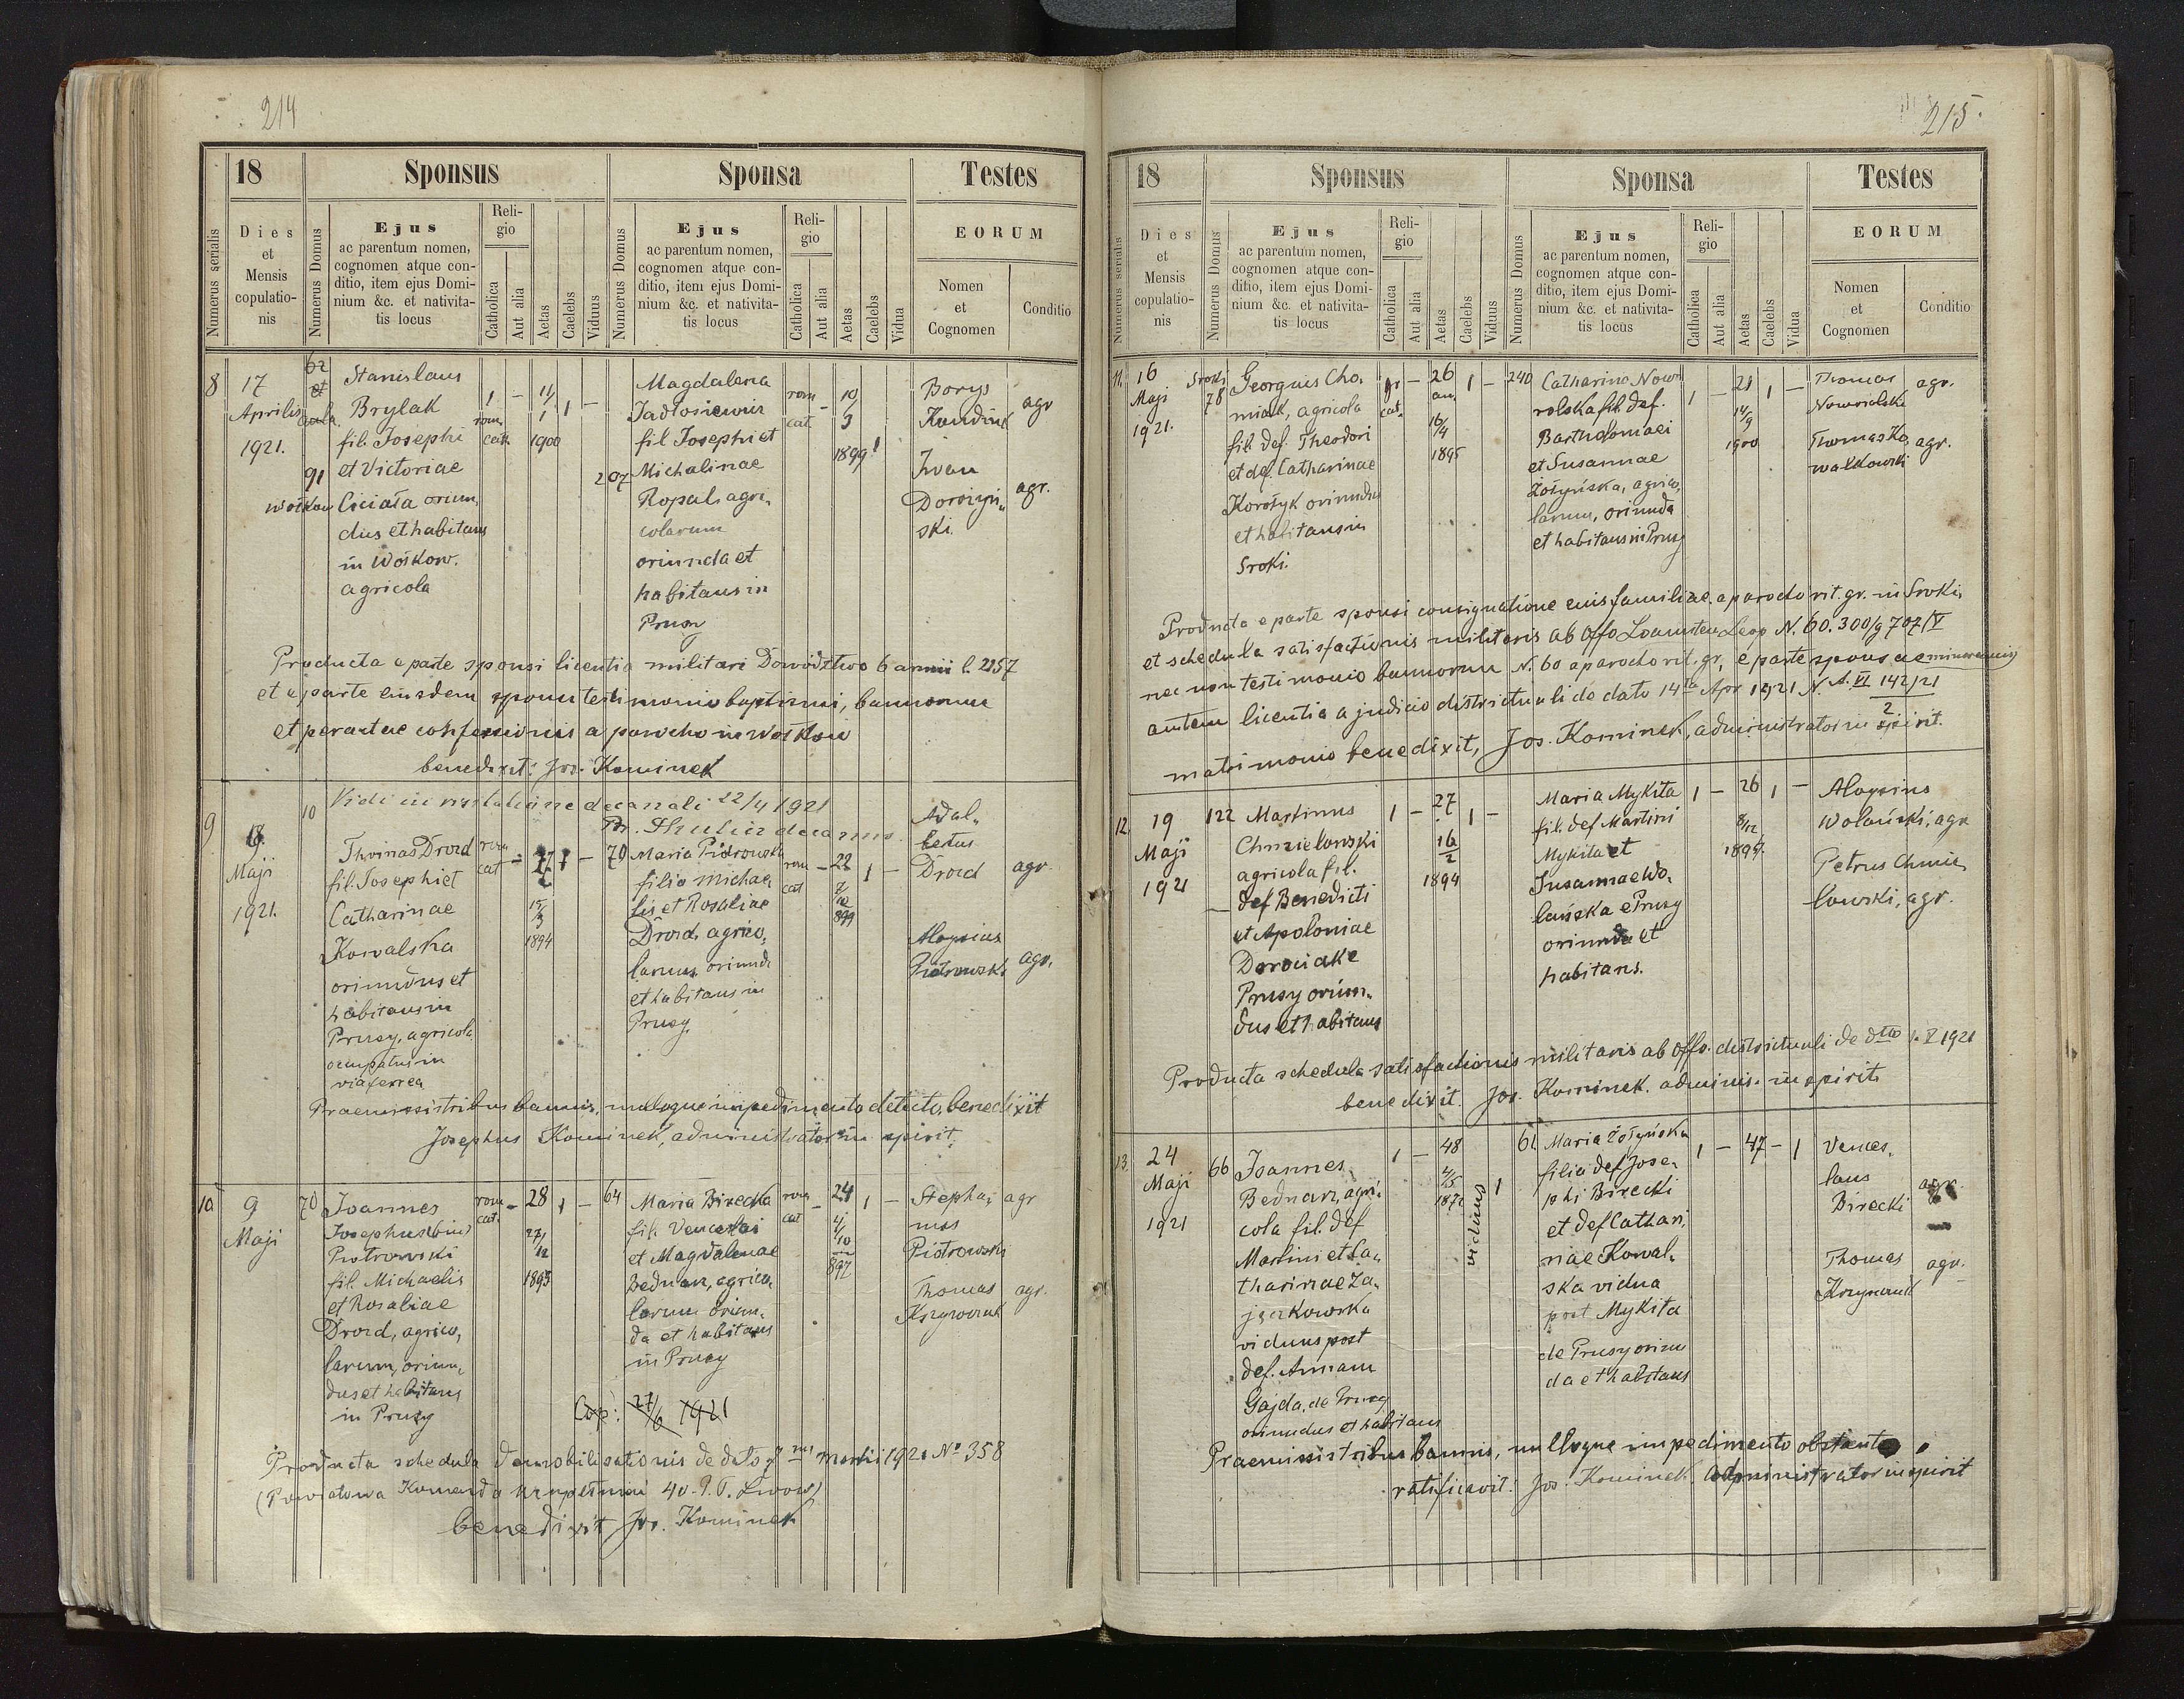 214
18
Sponsus
Sponsa
Testes
Numerus serialis
Dies
et
Mensis
copulatio-
nis
Numerus Domus
Ejus
ac parentum nomen,
cognomen atque con-
ditio, item ejus Domi-
nium &c. et nativita-
tis locus
Reli-
gio
Catholica
Aut alia
Aetas
Caelebs
Viduus
Numerus Domus
Ejus
ac parentum nomen,
cognomen atque con-
ditio, item ejus Domi-
nium &c. et nativita-
tis locus
Reli-
gio
Catholica
Aut alia
Aetas
Caelebs
Vidua
EORUM
Nomen
et
Cognomen
Conditio
8
17
Aprilis
1921.
62
et
91
Stanislaus
Brylak
fil. Josephi
et Victoriae
Ciciała oriun,
dus et habitans
in Wołkow.
agricola
1
rom
cat
–
11/
1
1900
1
–
207
Magdalena
fil Josephi et
Michalinae
Ropal agri,
colarum
oriunda et
habitans in
Prusy
rom
cat
–
10/
3
1899
1
Borys
agr
Iwan
ski.
agr.
Producta e parte sponsi licentia militari Dowództwo 6 armii l. 2257
et e parte eiusdem sponsi testimonio baptismi, bannorum
et peractae confessionis a parocho in Wołkow
benedixit: Jos. Kominek
Vidi in visitatione decanali 22/4 1921
decanus
9.
Maji
1921.
10
Thomas Drozd
fil. Josephi et
Catharinae
Kowalska
oriundus et
habitans in
Prusy, agricola
occupatus in
via ferrea
rom
cat
–
27
15/
3
1894
1
–
79
Maria Piotrowska
filia Michae
lis et Rosaliae
Drozd, agrico,
larum, oriunda
et habitans in
Prusy.
rom
cat
–
22
7/
12
899
1
–
Adal,
bertus
Drozd
agr
Aloysius
Piotrowski
agr.
Praemissis tribus bannis, nulloque impedimento detecto, benedixit
Josephus Kominek, administrator in spirit.
10
9
Maji
70
Joannes
Josephus (bin)
Piotrowski
fil. Michaelis
et Rosaliae
Drozd, agrico,
larum, oriun,
dus et habitans
in Prusy
rom
cat.
–
28
27/
12
1893
1
–
64
Maria Birecka
fil. Venceslai
et Magdalenae
Bednarz, agrico,
larum oriun,
da et habitans
in Prusy
rom
cat
–
24
4/
10
897
1
–
Stepha,
nus
Piotrowski
agr
Thomas
Krzywoniuk
agr.
Cop: 27/6 1921
Producta schedula demobilisationis de dato 7 mi martii 1921 No 358
(Powiatowa Komenda uzupełnień 40. P. P. Lwów)
benedixit Jos. Kominek
215.
18
Sponsus
Sponsa
Testes
Numerus serialis
Dies
et
Mensis
copulatio-
nis
Numerus Domus
Ejus
ac parentum nomen,
cognomen atque con-
ditio, item ejus Domi-
nium &c. et nativita-
tis locus
Reli-
gio
Catholica
Aut alia
Aetas
Caelebs
Viduus
Numerus Domus
Ejus
ac parentum nomen,
cognomen atque con-
ditio, item ejus Domi-
nium &c. et nativita-
tis locus
Reli-
gio
Catholica
Aut alia
Aetas
Caelebs
Vidua
EORUM
Nomen
et
Cognomen
Conditio
11.
16
Maji
1921.
Sroki
78
Georgius Cho,
miak, agricola
fil. def. Theodori
et def. Catharinae
Korotyk oriundus
et habitans in
Sroki.
gr
cat.
–
26
an.
16/
4
1895
1
–
240
Catharina Nowo
rolska fil. def.
Bartholomaei
et Susannae
Żołyńska, agrico,
larum, oriunda
et habitans in Prusy
1
–
21
14/
9
1900
1
–
Thomas
Noworolski
agr.
Thomas Ko,
walkowski
agr.
Producta e parte sponsi consignatione eius familiae a parocho rit. gr. in Sroki,
et schedula satisfactionis militaris ab Offo N. 60.300/g 707/V
nec non testimonio bannorum N. 60 a parocho rit. gr., e parte sponsae minorennis
autem licentia a judicio districtuali de dato 14ta Apr 1921 N. A. VI 142/21
2
matrimonio benedixit, Jos. Kominek, administrator in spirit.
12.
19
Maji
1921
122
Martinus
Chmielowski
agricola fil.
def Benedicti
et Apoloniae
Dorociake
Prusy oriun,
dus et habitans
1
–
27
16
2
1894
1
–
Maria Mykita
fil. def Martini
Mykita et
Susannae Wo,
lańska e Prusy
oriunda et
habitans.
1
–
26
8/12
1
–
Aloysius
Wolański, agr
Petrus Chmie,
lowski, agr.
Producta schedula satisfactionis militaris ab Offo. districtuali de dtto 1. V 1921
benedixit. Jos. Kominek. adminis. in spirit.
13.
24
Maji
1921
66
Joannes
Bednarz, agri,
cola fil. def
Martini et Ca,
tharinae Za,
jączkowska
viduus post
def. Annam
Gajda, de Prusy
oriundus et habitans
1
–
48
4/5
1872
viduus
1
61
Maria Żołyńska
filia def Jose,
phi Birecki
et def Cathari,
nae Kowal,
ska vidua
post Mykita
de Prusy oriun
da et habitans
1
–
47
–
1
Vences,
laus
Birecki
agr.
Thomas
Krzywoniuk
agr.
Praemissis tribus bannis, nulloque impedimento obstante
ratificavit: Jos. Kominek. administrator in spirit